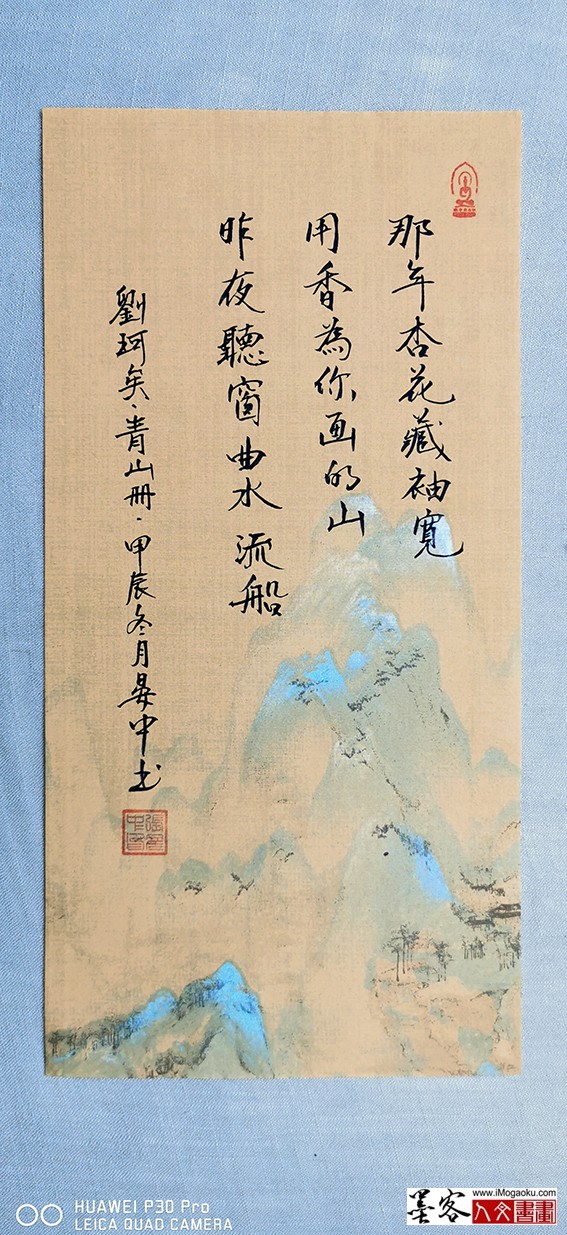 那年杏花藏袖寬
用香為你画的山
昨夜聽窗曲水流船
劉珂矣·青山冊·甲辰冬月晏中书
HUAWEI P30 Pro
LEICA QUAD CAMERA
墨客
www.iMogaoku.com
人文書畫